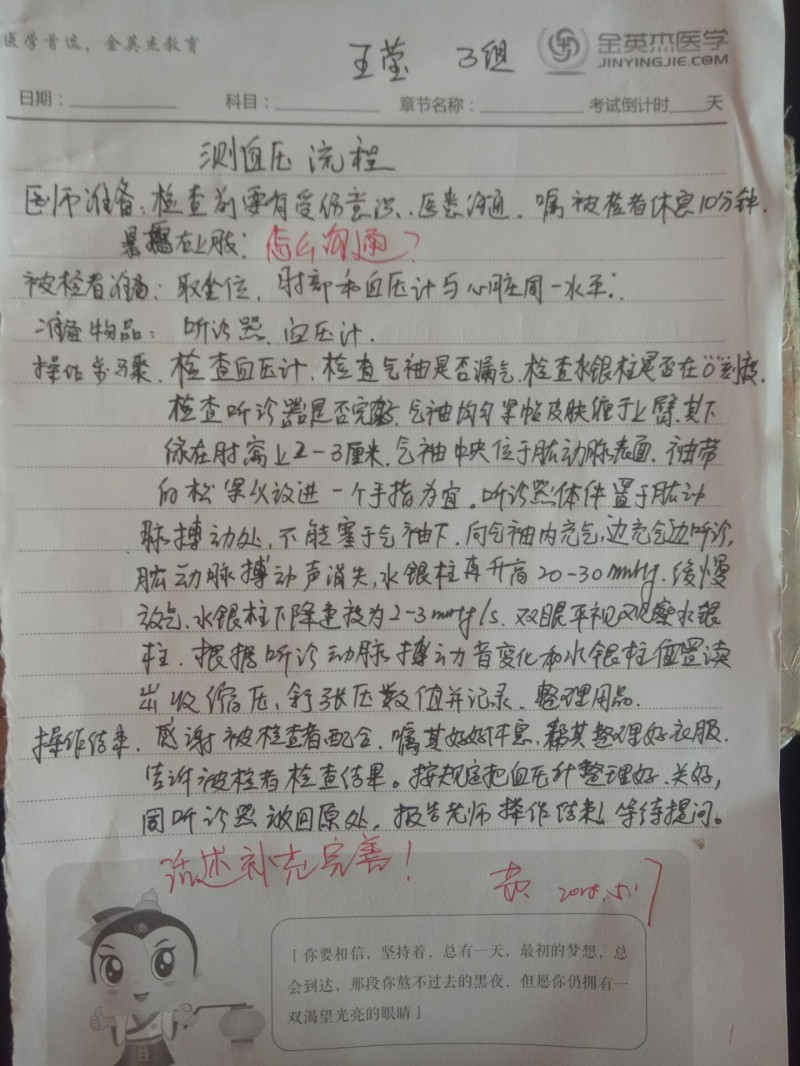 医学首选，金英杰教育
王莹 3组
金英杰医学
JINYINGJIE.COM
日期： 科目： 章节名称： 考试倒计时 天
测血压流程
医师准备：检查前要有受伤意识、医患沟通，嘱被检者休息10分钟，
暴露右上肢； 怎么沟通？
被检者准备：取坐位，肘部和血压计与心脏在同一水平；
准备物品：听诊器、血压计.
操作步骤，检查血压计，检查气袖是否漏气，检查水银柱是否在"0"刻度，
检查听诊器是否完好，气袖均匀紧贴皮肤缠于上臂，其下
缘在肘窝上2-3厘米，气袖中央位于肱动脉表面，袖带
的松紧以放进一个手指为宜。听诊器体件置于肱动
脉搏动处，不能塞于气袖下，向气袖内充气，边充气边听诊，
肱动脉搏动声消失，水银柱再升高20-30mmHg，缓慢
放气，水银柱下降速度为2-3mmHg/s，双眼平视观察水银
柱，根据听诊动脉搏动音变化和水银柱位置读
出收缩压，舒张压数值并记录，整理用品.
操作结束，感谢被检查者配合，嘱其好好休息，帮其整理好衣服，
告诉被检者检查结果。按规定把血压计整理好，关好，
同听诊器放回原处，报告老师操作结束！等待提问。
话述补充完善！
「你要相信，坚持着，总有一天，最初的梦想，总
会到达，那段你熬不过去的黑夜，但愿你仍拥有一
双渴望光亮的眼睛」
1